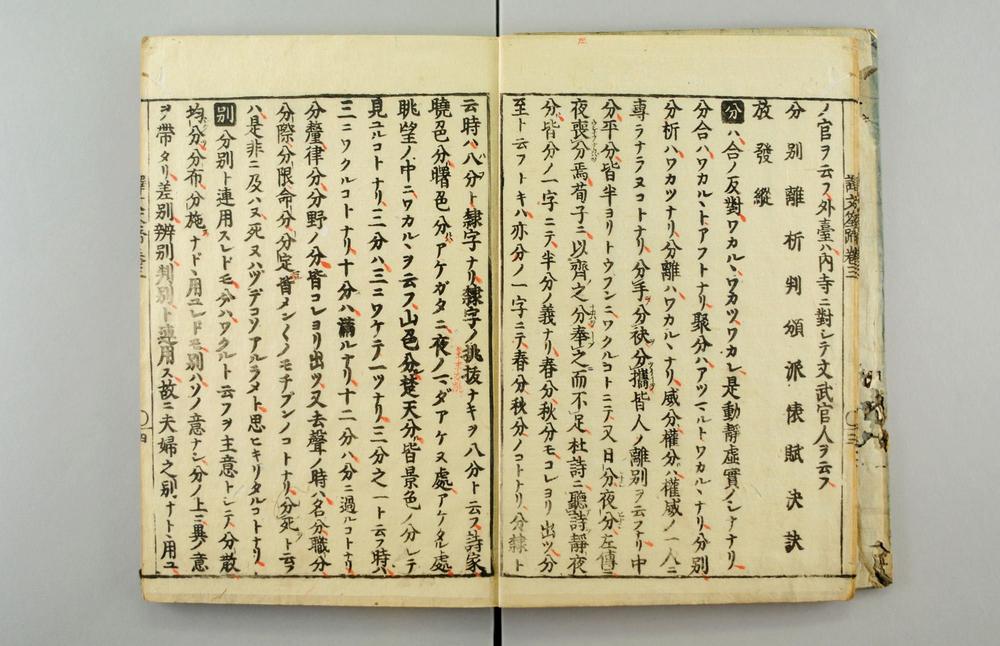 ノ官ヲ云フ外臺ハ內寺ニ對シテ文武官人ヲ云フ
分別離析判頒派俵賦決訣
放發縱
分ハ合ノ反對ワカル丶ワカツワカレ是動靜虛實ノシナナリ
分合ハワカル丶トアフトナリ聚分ハアツマルトワカル丶ナリ分別
分析ハワカツナリ分離ハワカル丶ナリ威分權分ハ權威ノ一人ニ
專ラナラヌコトナリ分手分袂分攜皆人ノ離別ヲ云フナリ中
分平分皆半ヨリトウブンニワクルコトニテ又日分夜分左傳ニ
夜喪分焉荀子ニ以齊之分奉之而不足杜詩ニ聽詩靜夜
分皆分ノ一字ニテ半分ノ義ナリ春分秋分モコレヨリ出ツ分
至ト云フトキハ亦分ノ一字ニテ春分秋分ノコトナリ分隸ト
云時ハ八分ト隸字ナリ隸字ノ挑拔ナキヲ八分ト云フ詩家
曉色分曙色分アケガタニ夜ノマダアケヌ處アケタル處
眺望ノ中ニワカル丶ヲ云フ山色分楚天分皆景色ノ分レテ
見ユルコトナリ三分ハ三ニワケテ一ツナリ三分之一ト云フ時ハ
三ニワクルコトナリ十分ハ滿ルナリ十二分ハ分ニ過ルコトナリ
分釐律分分野ノ分皆コレヨリ出ツ又去聲ノ時ハ名分職分
分際分限命分分定皆メン〱ノモチブンノコトナリ分死ト云フ
ハ是非ニ及ハヌ死ヌハヅデコソアルラメト思ヒキリタルコトナリ
別分別ト連用スレドモ分ハワクルト云フヲ主意トシテ分散
均分分布分施ナド丶用ユレドモ別ハソノ意ナシ分ノ上ニ異ノ意
ヲ帶タリ差別辨別判別ト連用ス故ニ夫婦之別ナト用ユ